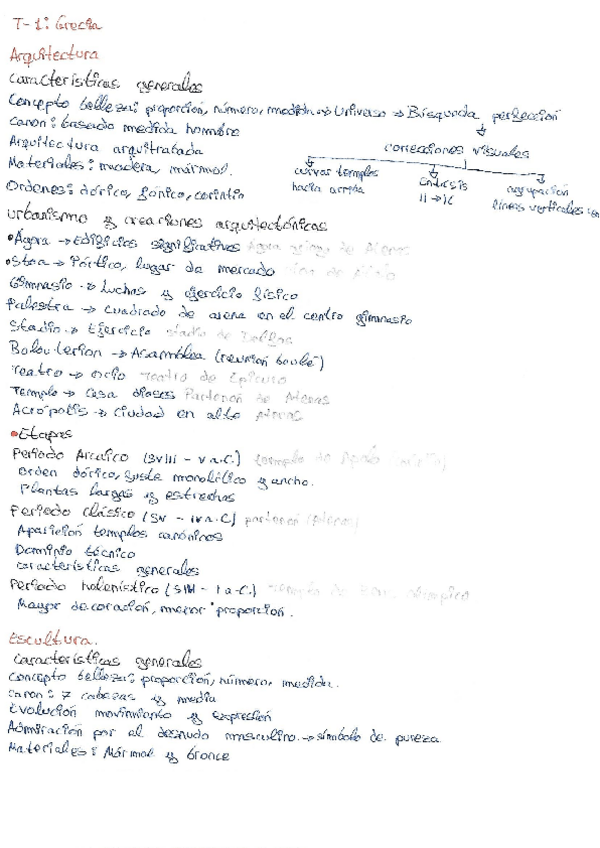 T-1: Grecia
Arquitectura
Características generales
Concepto belleza: proporción, número, medida → Universo → Búsqueda perfección
Canon: basado medida hombre
correcciones visuales
Arquitectura arquitrabada
Materiales: madera, mármol.
curvar templos hacia arriba
éntasis
agrupación líneas verticales
Ordenes: dórico, jónico, corintio
urbanismo y creaciones arquitectónicas
•Ágora → Edificios significativos Ágora de Atenas
•Stoa → Pórtico, lugar de mercado
Gimnasio → Luchas y ejercicio físico
Palestra → cuadrado de arena en el centro gimnasio
Stadio → Ejercicio stadio de Delfos
Bolouterion → Asamblea (reunión boulé)
Teatro → ocio Teatro de Epicuro
Templo → Casa dioses Partenón de Atenas
Acrópolis → ciudad en alto Atenas
•Etapas
Periodo Arcaico (SVIII - V a.C.) templo de Apolo
Orden dórico, fuste monolítico y ancho.
Plantas largas y estrechas
Periodo clásico (SV - IV a.C) partenón
Aparición templos canónicos
Dominio técnico
características generales
Periodo helenístico (SIII - I a.C.) templo de Zeus olímpico
Mayor decoración, menor proporción.
Escultura.
Características generales
Concepto belleza: proporción, número, medida.
Canon: 7 cabezas y media
Evolución movimiento y expresión
Admiración por el desnudo masculino → símbolo de pureza
Materiales: Mármol y bronce